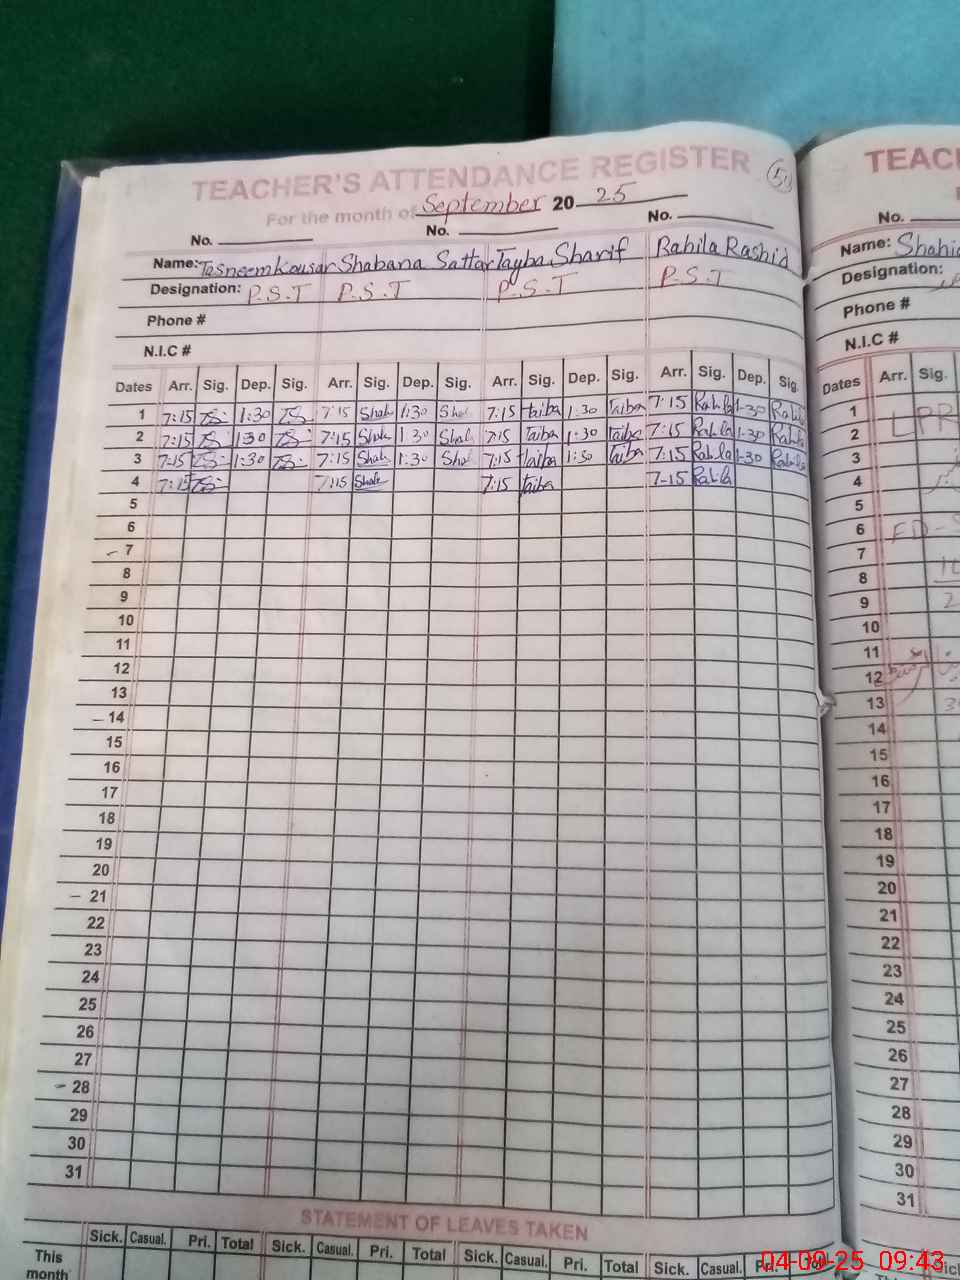 TEACHER'S ATTENDANCE REGISTER
For the month of September 20 25
No. No. No.
Name: Tasneem Kousar Shabana Sattar Tayba Sharif Rahila Rashid
Designation: P.S.T P.S.T P.S.T P.S.T
Phone #
N.I.C #
Dates Arr. Sig. Dep. Sig. Arr. Sig. Dep. Sig. Arr. Sig. Dep. Sig. Arr. Sig. Dep. Sig.
1 7:15 1:30 7:15 Shab 1:30 Shab 7:15 taiba 1:30 Taiba 7-15 Rahila 1-30 Rahila
2 7:15 1:30 7:15 Shab 1:30 Shab 7:15 Taiba 1:30 Taiba 7:15 Rahila 1-30 Rahila
3 7:15 1:30 7:15 Shab 1:30 Shab 7:15 taiba 1:30 taiba 7:15 Rahila 1-30 Rahila
4 7:15 7:15 Shab 7:15 taiba 7-15 Rahila
5
6
- 7
8
9
10
11
12
13
- 14
15
16
17
18
19
20
- 21
22
23
24
25
26
27
- 28
29
30
31
STATEMENT OF LEAVES TAKEN
Sick. Casual. Pri. Total Sick. Casual. Pri. Total Sick. Casual. Pri. Total Sick. Casual. Pri.
This
month
TEAC
No.
Name: Shahi
Designation:
Phone #
N.I.C #
Dates Arr. Sig.
1 LPR
2
3
4
5
6
7
8
9
10
11
12
13
14
15
16
17
18
19
20
21
22
23
24
25
26
27
28
29
30
31
04-09-25 09:43